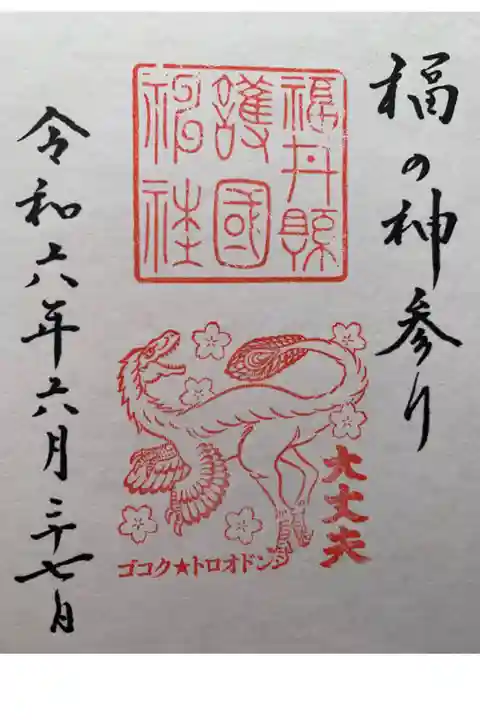 福の神参り
福井縣
護國
神社
大丈夫
ゴコク★トロオドン
令和六年六月二十七日